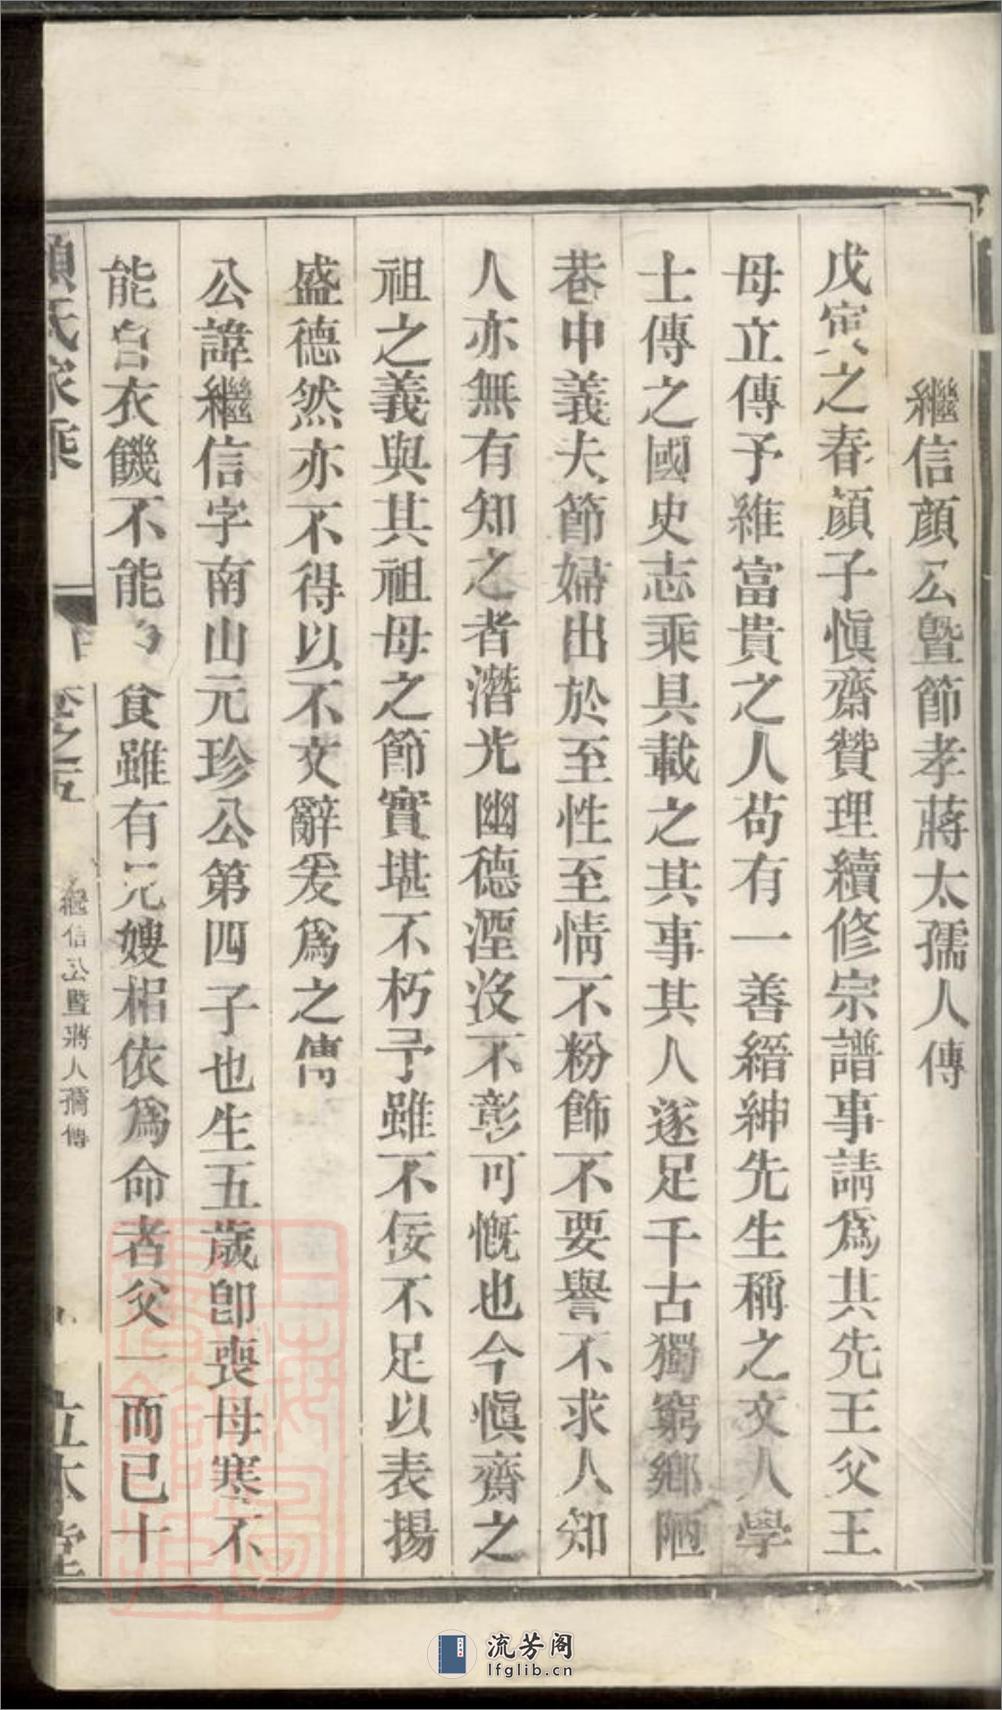 繼信顏公暨節孝蔣太孺人傳
戊寅之春顏子愼齋贊理續修宗譜事請爲其先王父王
母立傳予維富貴之人苟有一善縉紳先生稱之文人學
士傳之國史志乘具載之其事其人遂足千古獨窮鄉陋
巷中義夫節婦出於至性至情不粉飾不要譽不求人知
人亦無有知之者潛光幽德湮沒不彰可慨也今愼齋之
祖之義與其祖母之節實堪不朽予雖不佞不足以表揚
盛德然亦不得以不文辭爰爲之傳
公諱繼信字南山元珍公第四子也生五歲卽喪母寒不
能自衣饑不能食雖有兄嫂相依爲命者父一而已十
顏氏家乘
卷之五
繼信公暨蔣人孺傳
立本堂
上海圖書館藏
流芳阁
lfglib.cn